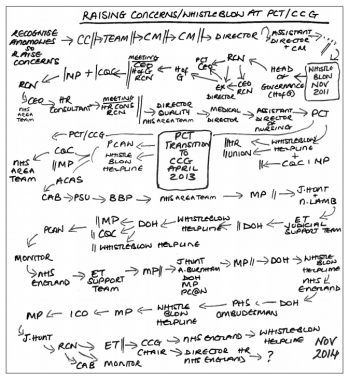 RAISING CONCERNS/WHISTLEBLOW AT PCT/CCG
RECOGNISE ANOMALIES SO RAISE CONCERNS → CC || → TEAM || → CM || → CM || → DIRECTOR → ASSISTANT DIRECTOR + CM
WHISTLE BLOW NOV 2011
RCN ← || MP + || CQC ← MEETING CEO HofG RCN ← HofG ← PCT CEO ← RCN ← HEAD OF GOVERNANCE (HofG)
EX DIRECTOR ← CEO RCN
CEO NHS AREA TEAM → HR CONSULTANT → MEETING HR CONS RCN → || DIRECTOR QUALITY NHS AREA TEAM → MEDICAL DIRECTOR → ASSISTANT DIRECTOR OF NURSING → PCT
PCT TRANSITION TO CCG APRIL 2013
|| HR || UNION ← WHISTLEBLOW HELPLINE + || CQC + MP
NHS AREA TEAM ← PCT/CCG
CQC ← PCAW
|| MP ← WHISTLE BLOW HELPLINE
ACAS
CAB → PSU → BBP → NHS AREA TEAM → MP || → J.HUNT + N.LAMB
PCAW ← || MP || CQC ← DOH ← WHISTLEBLOW HELPLINE ← || DOH ← ET JUDICIAL SUPPORT TEAM
|| WHISTLEBLOW HELPLINE
MONITOR → NHS ENGLAND → ET SUPPORT TEAM → MP || → J.HUNT A.BURNHAM DOH MP PC@W → MP || → DOH → WHISTLE BLOW HELPLINE
NHS ENGLAND
MP ← ICO ← MP ← WHISTLE BLOW HELPLINE ← PHS OMBUDESMAN ← DOH
J.HUNT → RCN → ET || → CCG CHAIR → NHS ENGLAND → WHISTLEBLOW HELPLINE
CAB MONITOR → DIRECTOR HR NHS ENGLAND → ?
NOV 2014